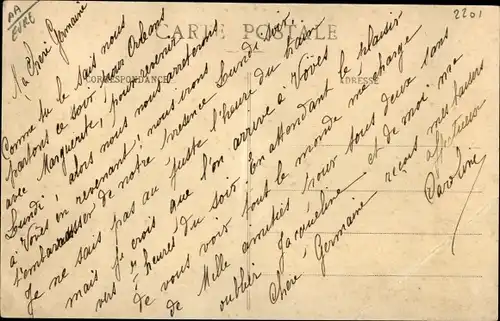 AA
EURE
2201
CARTE POSTALE
CORRESPONDANCE
ADRESSE
Ma Chère Germaine
Comme tu le sais nous
partons ce soir pour Orléans
avec Marguerite, pour revenir
Lundi, alors nous nous arrêterons
à Voves en revenant, nous irons
t'embarrasser de notre présence Lundi soir,
Je ne sais pas au juste l'heure du train
mais je crois que l'on arrive à Voves
vers 7 heures du soir. En attendant le plaisir
de vous voir tout le monde me charge
de Mille amitiés pour tous deux sans
oublier Jacqueline et de moi ma
Chère Germaine reçois mes baisers
affectueux
Caroline